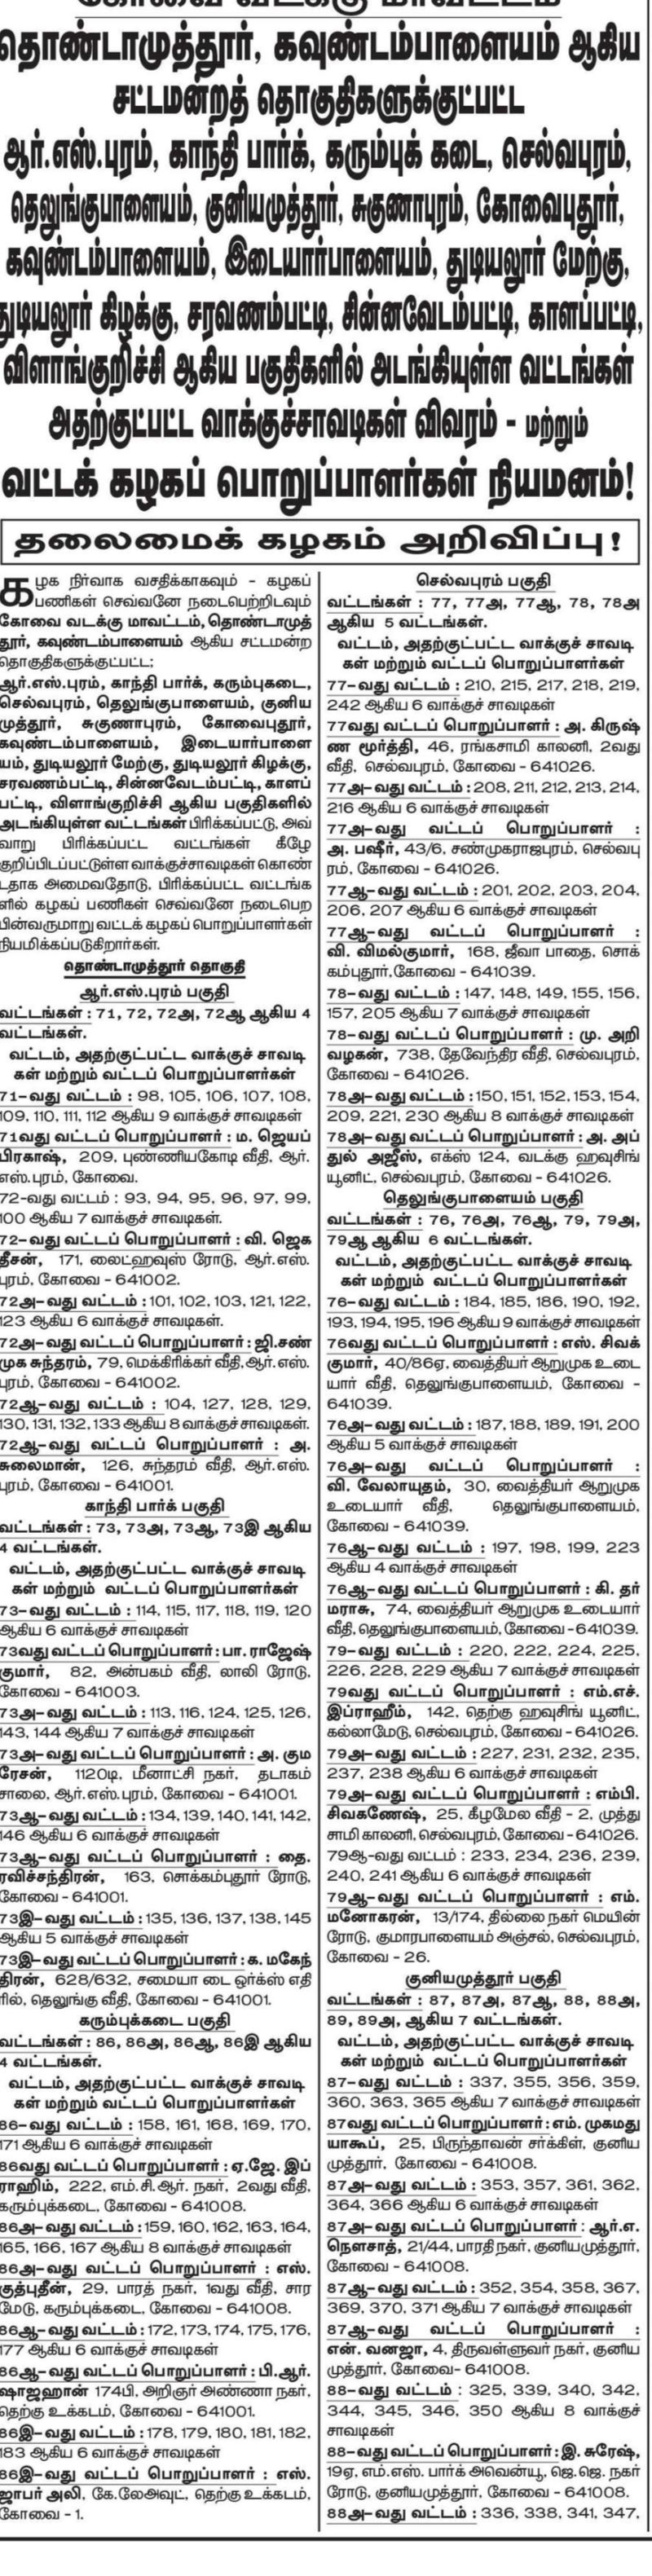 கோவை வடக்கு மாவட்டம்
தொண்டாமுத்தூர், கவுண்டம்பாளையம் ஆகிய
சட்டமன்றத் தொகுதிகளுக்குட்பட்ட
ஆர்.எஸ்.புரம், காந்தி பார்க், கரும்புக் கடை, செல்வபுரம்,
தெலுங்குபாளையம், குனியமுத்தூர், சுகுணாபுரம், கோவைபுதூர்,
கவுண்டம்பாளையம், இடையார்பாளையம், துடியலூர் மேற்கு,
துடியலூர் கிழக்கு, சரவணம்பட்டி, சின்னவேடம்பட்டி, காளப்பட்டி,
விளாங்குறிச்சி ஆகிய பகுதிகளில் அடங்கியுள்ள வட்டங்கள்
அதற்குட்பட்ட வாக்குச்சாவடிகள் விவரம் - மற்றும்
வட்டக் கழகப் பொறுப்பாளர்கள் நியமனம்!
தலைமைக் கழகம் அறிவிப்பு!
கழக நிர்வாக வசதிக்காகவும் - கழகப்
பணிகள் செவ்வனே நடைபெற்றிடவும்
கோவை வடக்கு மாவட்டம், தொண்டாமுத்
தூர், கவுண்டம்பாளையம் ஆகிய சட்டமன்ற
தொகுதிகளுக்குட்பட்ட;
ஆர்.எஸ்.புரம், காந்தி பார்க், கரும்புகடை,
செல்வபுரம், தெலுங்குபாளையம், குனிய
முத்தூர், சுகுணாபுரம், கோவைபுதூர்,
கவுண்டம்பாளையம், இடையார்பாளை
யம், துடியலூர் மேற்கு, துடியலூர் கிழக்கு,
சரவணம்பட்டி, சின்னவேடம்பட்டி, காளப்
பட்டி, விளாங்குறிச்சி ஆகிய பகுதிகளில்
அடங்கியுள்ள வட்டங்கள் பிரிக்கப்பட்டு, அவ்
வாறு பிரிக்கப்பட்ட வட்டங்கள் கீழே
குறிப்பிடப்பட்டுள்ள வாக்குச்சாவடிகள் கொண்
டதாக அமைவதோடு, பிரிக்கப்பட்ட வட்டங்க
ளில் கழகப் பணிகள் செவ்வனே நடைபெற
பின்வருமாறு வட்டக் கழகப் பொறுப்பாளர்கள்
நியமிக்கப்படுகிறார்கள்.
தொண்டாமுத்தூர் தொகுதி
ஆர்.எஸ்.புரம் பகுதி
வட்டங்கள் : 71, 72, 72அ, 72ஆ ஆகிய 4
வட்டங்கள்.
வட்டம், அதற்குட்பட்ட வாக்குச் சாவடி
கள் மற்றும் வட்டப் பொறுப்பாளர்கள்
71-வது வட்டம் : 98, 105, 106, 107, 108,
109, 110, 111, 112 ஆகிய 9 வாக்குச் சாவடிகள்
71வது வட்டப் பொறுப்பாளர் : ம. ஜெயப்
பிரகாஷ், 209, புண்ணியகோடி வீதி, ஆர்.
எஸ்.புரம், கோவை.
72-வது வட்டம் : 93, 94, 95, 96, 97, 99,
100 ஆகிய 7 வாக்குச் சாவடிகள்.
72-வது வட்டப் பொறுப்பாளர் : வி. ஜெக
தீசன், 171, லைட்ஹவுஸ் ரோடு, ஆர்.எஸ்.
புரம், கோவை - 641002.
72அ-வது வட்டம் : 101, 102, 103, 121, 122,
123 ஆகிய 6 வாக்குச் சாவடிகள்.
72அ-வது வட்டப் பொறுப்பாளர் : ஜி.சண்
முக சுந்தரம், 79, மெக்கிரிக்கர் வீதி, ஆர்.எஸ்.
புரம், கோவை - 641002.
72ஆ-வது வட்டம் : 104, 127, 128, 129,
130, 131, 132, 133 ஆகிய 8 வாக்குச் சாவடிகள்.
72ஆ-வது வட்டப் பொறுப்பாளர் : அ.
சுலைமான், 126, சுந்தரம் வீதி, ஆர்.எஸ்.
புரம், கோவை - 641001.
காந்தி பார்க் பகுதி
வட்டங்கள் : 73, 73அ, 73ஆ, 73இ ஆகிய
4 வட்டங்கள்.
வட்டம், அதற்குட்பட்ட வாக்குச் சாவடி
கள் மற்றும் வட்டப் பொறுப்பாளர்கள்
73-வது வட்டம் : 114, 115, 117, 118, 119, 120
ஆகிய 6 வாக்குச் சாவடிகள்
73வது வட்டப் பொறுப்பாளர் : பா. ராஜேஷ்
குமார், 82, அன்பகம் வீதி, லாலி ரோடு,
கோவை - 641003.
73அ-வது வட்டம் : 113, 116, 124, 125, 126,
143, 144 ஆகிய 7 வாக்குச் சாவடிகள்
73அ-வது வட்டப் பொறுப்பாளர் : அ. கும
ரேசன், 1120டி, மீனாட்சி நகர், தடாகம்
சாலை, ஆர்.எஸ்.புரம், கோவை - 641001.
73ஆ-வது வட்டம் : 134, 139, 140, 141, 142,
146 ஆகிய 6 வாக்குச் சாவடிகள்
73ஆ-வது வட்டப் பொறுப்பாளர் : தை.
ரவிச்சந்திரன், 163, சொக்கம்புதூர் ரோடு,
கோவை - 641001.
73இ-வது வட்டம் : 135, 136, 137, 138, 145
ஆகிய 5 வாக்குச் சாவடிகள்
73இ-வது வட்டப் பொறுப்பாளர் : க. மகேந்
திரன், 628/632, சமையா டை ஒர்க்ஸ் எதி
ரில், தெலுங்கு வீதி, கோவை - 641001.
கரும்புக்கடை பகுதி
வட்டங்கள் : 86, 86அ, 86ஆ, 86இ ஆகிய
4 வட்டங்கள்.
வட்டம், அதற்குட்பட்ட வாக்குச் சாவடி
கள் மற்றும் வட்டப் பொறுப்பாளர்கள்
86-வது வட்டம் : 158, 161, 168, 169, 170,
171 ஆகிய 6 வாக்குச் சாவடிகள்
86வது வட்டப் பொறுப்பாளர் : ஏ.ஜே. இப்
ராஹிம், 222, எம்.சி.ஆர். நகர், 2வது வீதி,
கரும்புக்கடை, கோவை - 641008.
86அ-வது வட்டம் : 159, 160, 162, 163, 164,
165, 166, 167 ஆகிய 8 வாக்குச் சாவடிகள்
86அ-வது வட்டப் பொறுப்பாளர் : எஸ்.
குத்புதீன், 29, பாரத் நகர், 1வது வீதி, சார
மேடு, கரும்புக்கடை, கோவை - 641008.
86ஆ-வது வட்டம் : 172, 173, 174, 175, 176,
177 ஆகிய 6 வாக்குச் சாவடிகள்
86ஆ-வது வட்டப் பொறுப்பாளர் : பி.ஆர்.
ஷாஜஹான் 174பி, அறிஞர் அண்ணா நகர்,
தெற்கு உக்கடம், கோவை - 641001.
86இ-வது வட்டம் : 178, 179, 180, 181, 182,
183 ஆகிய 6 வாக்குச் சாவடிகள்
86இ-வது வட்டப் பொறுப்பாளர் : எஸ்.
ஜாபர் அலி, கே.லேஅவுட், தெற்கு உக்கடம்,
கோவை - 1.
செல்வபுரம் பகுதி
வட்டங்கள் : 77, 77அ, 77ஆ, 78, 78அ
ஆகிய 5 வட்டங்கள்.
வட்டம், அதற்குட்பட்ட வாக்குச் சாவடி
கள் மற்றும் வட்டப் பொறுப்பாளர்கள்
77-வது வட்டம் : 210, 215, 217, 218, 219,
242 ஆகிய 6 வாக்குச் சாவடிகள்
77வது வட்டப் பொறுப்பாளர் : அ. கிருஷ்
ண மூர்த்தி, 46, ரங்கசாமி காலனி, 2வது
வீதி, செல்வபுரம், கோவை - 641026.
77அ-வது வட்டம் : 208, 211, 212, 213, 214,
216 ஆகிய 6 வாக்குச் சாவடிகள்
77அ-வது வட்டப் பொறுப்பாளர் :
அ. பஷீர், 43/6, சண்முகராஜபுரம், செல்வபு
ரம், கோவை - 641026.
77ஆ-வது வட்டம் : 201, 202, 203, 204,
206, 207 ஆகிய 6 வாக்குச் சாவடிகள்
77ஆ-வது வட்டப் பொறுப்பாளர் :
வி. விமல்குமார், 168, ஜீவா பாதை, சொக்
கம்புதூர், கோவை - 641039.
78-வது வட்டம் : 147, 148, 149, 155, 156,
157, 205 ஆகிய 7 வாக்குச் சாவடிகள்
78-வது வட்டப் பொறுப்பாளர் : மு. அறி
வழகன், 738, தேவேந்திர வீதி, செல்வபுரம்,
கோவை - 641026.
78அ-வது வட்டம் : 150, 151, 152, 153, 154,
209, 221, 230 ஆகிய 8 வாக்குச் சாவடிகள்
78அ-வது வட்டப் பொறுப்பாளர் : அ. அப்
துல் அஜீஸ், எக்ஸ் 124, வடக்கு ஹவுசிங்
யூனிட், செல்வபுரம், கோவை - 641026.
தெலுங்குபாளையம் பகுதி
வட்டங்கள் : 76, 76அ, 76ஆ, 79, 79அ,
79ஆ ஆகிய 6 வட்டங்கள்.
வட்டம், அதற்குட்பட்ட வாக்குச் சாவடி
கள் மற்றும் வட்டப் பொறுப்பாளர்கள்
76-வது வட்டம் : 184, 185, 186, 190, 192,
193, 194, 195, 196 ஆகிய 9 வாக்குச் சாவடிகள்
76வது வட்டப் பொறுப்பாளர் : எஸ். சிவக்
குமார், 40/86ஏ, வைத்தியர் ஆறுமுக உடை
யார் வீதி, தெலுங்குபாளையம், கோவை -
641039.
76அ-வது வட்டம் : 187, 188, 189, 191, 200
ஆகிய 5 வாக்குச் சாவடிகள்
76அ-வது வட்டப் பொறுப்பாளர் :
வி. வேலாயுதம், 30, வைத்தியர் ஆறுமுக
உடையார் வீதி, தெலுங்குபாளையம்,
கோவை - 641039.
76ஆ-வது வட்டம் : 197, 198, 199, 223
ஆகிய 4 வாக்குச் சாவடிகள்
76ஆ-வது வட்டப் பொறுப்பாளர் : கி. தர்
மராசு, 74, வைத்தியர் ஆறுமுக உடையார்
வீதி, தெலுங்குபாளையம், கோவை - 641039.
79-வது வட்டம் : 220, 222, 224, 225,
226, 228, 229 ஆகிய 7 வாக்குச் சாவடிகள்
79வது வட்டப் பொறுப்பாளர் : எம்.எச்.
இப்ராஹீம், 142, தெற்கு ஹவுசிங் யூனிட்,
கல்லாமேடு, செல்வபுரம், கோவை - 641026.
79அ-வது வட்டம் : 227, 231, 232, 235,
237, 238 ஆகிய 6 வாக்குச் சாவடிகள்
79அ-வது வட்டப் பொறுப்பாளர் : எம்பி.
சிவகணேஷ், 25, கீழமேல வீதி - 2, முத்து
சாமி காலனி, செல்வபுரம், கோவை - 641026.
79ஆ-வது வட்டம் : 233, 234, 236, 239,
240, 241 ஆகிய 6 வாக்குச் சாவடிகள்
79ஆ-வது வட்டப் பொறுப்பாளர் : எம்.
மனோகரன், 13/174, தில்லை நகர் மெயின்
ரோடு, குமாரபாளையம் அஞ்சல், செல்வபுரம்,
கோவை - 26.
குனியமுத்தூர் பகுதி
வட்டங்கள் : 87, 87அ, 87ஆ, 88, 88அ,
89, 89அ, ஆகிய 7 வட்டங்கள்.
வட்டம், அதற்குட்பட்ட வாக்குச் சாவடி
கள் மற்றும் வட்டப் பொறுப்பாளர்கள்
87-வது வட்டம் : 337, 355, 356, 359,
360, 363, 365 ஆகிய 7 வாக்குச் சாவடிகள்
87வது வட்டப் பொறுப்பாளர் : எம். முகமது
யாகூப், 25, பிருந்தாவன் சர்க்கிள், குனிய
முத்தூர், கோவை - 641008.
87அ-வது வட்டம் : 353, 357, 361, 362,
364, 366 ஆகிய 6 வாக்குச் சாவடிகள்
87அ-வது வட்டப் பொறுப்பாளர் : ஆர்.எ.
நௌசாத், 21/44, பாரதி நகர், குனியமுத்தூர்,
கோவை - 641008.
87ஆ-வது வட்டம் : 352, 354, 358, 367,
369, 370, 371 ஆகிய 7 வாக்குச் சாவடிகள்
87ஆ-வது வட்டப் பொறுப்பாளர் :
என். வனஜா, 4, திருவள்ளுவர் நகர், குனிய
முத்தூர், கோவை- 641008.
88-வது வட்டம் : 325, 339, 340, 342,
344, 345, 346, 350 ஆகிய 8 வாக்குச்
சாவடிகள்
88-வது வட்டப் பொறுப்பாளர் : இ. சுரேஷ்,
19ஏ, எம்.எஸ். பார்க் அவென்யூ, ஜெ.ஜெ. நகர்
ரோடு, குனியமுத்தூர், கோவை - 641008.
88அ-வது வட்டம் : 336, 338, 341, 347,